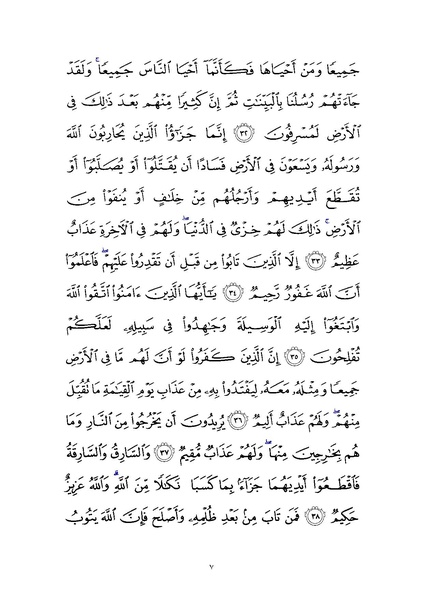 جَمِيعًا وَمَنْ أَحْيَاهَا فَكَأَنَّمَآ أَحْيَا ٱلنَّاسَ جَمِيعًاۚ وَلَقَدْ
جَآءَتْهُمْ رُسُلُنَا بِٱلْبَيِّنَٰتِ ثُمَّ إِنَّ كَثِيرًا مِّنْهُم بَعْدَ ذَٰلِكَ فِى
ٱلْأَرْضِ لَمُسْرِفُونَ ٣٢ إِنَّمَا جَزَٰٓؤُا۟ ٱلَّذِينَ يُحَارِبُونَ ٱللَّهَ
وَرَسُولَهُۥ وَيَسْعَوْنَ فِى ٱلْأَرْضِ فَسَادًا أَن يُقَتَّلُوٓا۟ أَوْ يُصَلَّبُوٓا۟ أَوْ
تُقَطَّعَ أَيْدِيهِمْ وَأَرْجُلُهُم مِّنْ خِلَٰفٍ أَوْ يُنفَوْا۟ مِنَ
ٱلْأَرْضِۚ ذَٰلِكَ لَهُمْ خِزْىٌ فِى ٱلدُّنْيَاۖ وَلَهُمْ فِى ٱلْءَاخِرَةِ عَذَابٌ
عَظِيمٌ ٣٣ إِلَّا ٱلَّذِينَ تَابُوا۟ مِن قَبْلِ أَن تَقْدِرُوا۟ عَلَيْهِمْۖ فَٱعْلَمُوٓا۟
أَنَّ ٱللَّهَ غَفُورٌ رَّحِيمٌ ٣٤ يَٰٓأَيُّهَا ٱلَّذِينَ ءَامَنُوا۟ ٱتَّقُوا۟ ٱللَّهَ
وَٱبْتَغُوٓا۟ إِلَيْهِ ٱلْوَسِيلَةَ وَجَٰهِدُوا۟ فِى سَبِيلِهِۦ لَعَلَّكُمْ
تُفْلِحُونَ ٣٥ إِنَّ ٱلَّذِينَ كَفَرُوا۟ لَوْ أَنَّ لَهُم مَّا فِى ٱلْأَرْضِ
جَمِيعًا وَمِثْلَهُۥ مَعَهُۥ لِيَفْتَدُوا۟ بِهِۦ مِنْ عَذَابِ يَوْمِ ٱلْقِيَٰمَةِ مَا تُقُبِّلَ
مِنْهُمْۖ وَلَهُمْ عَذَابٌ أَلِيمٌ ٣٦ يُرِيدُونَ أَن يَخْرُجُوا۟ مِنَ ٱلنَّارِ وَمَا
هُم بِخَٰرِجِينَ مِنْهَاۖ وَلَهُمْ عَذَابٌ مُّقِيمٌ ٣٧ وَٱلسَّارِقُ وَٱلسَّارِقَةُ
فَٱقْطَعُوٓا۟ أَيْدِيَهُمَا جَزَآءًۢ بِمَا كَسَبَا نَكَٰلًا مِّنَ ٱللَّهِۗ وَٱللَّهُ عَزِيزٌ
حَكِيمٌ ٣٨ فَمَن تَابَ مِنۢ بَعْدِ ظُلْمِهِۦ وَأَصْلَحَ فَإِنَّ ٱللَّهَ يَتُوبُ
٧